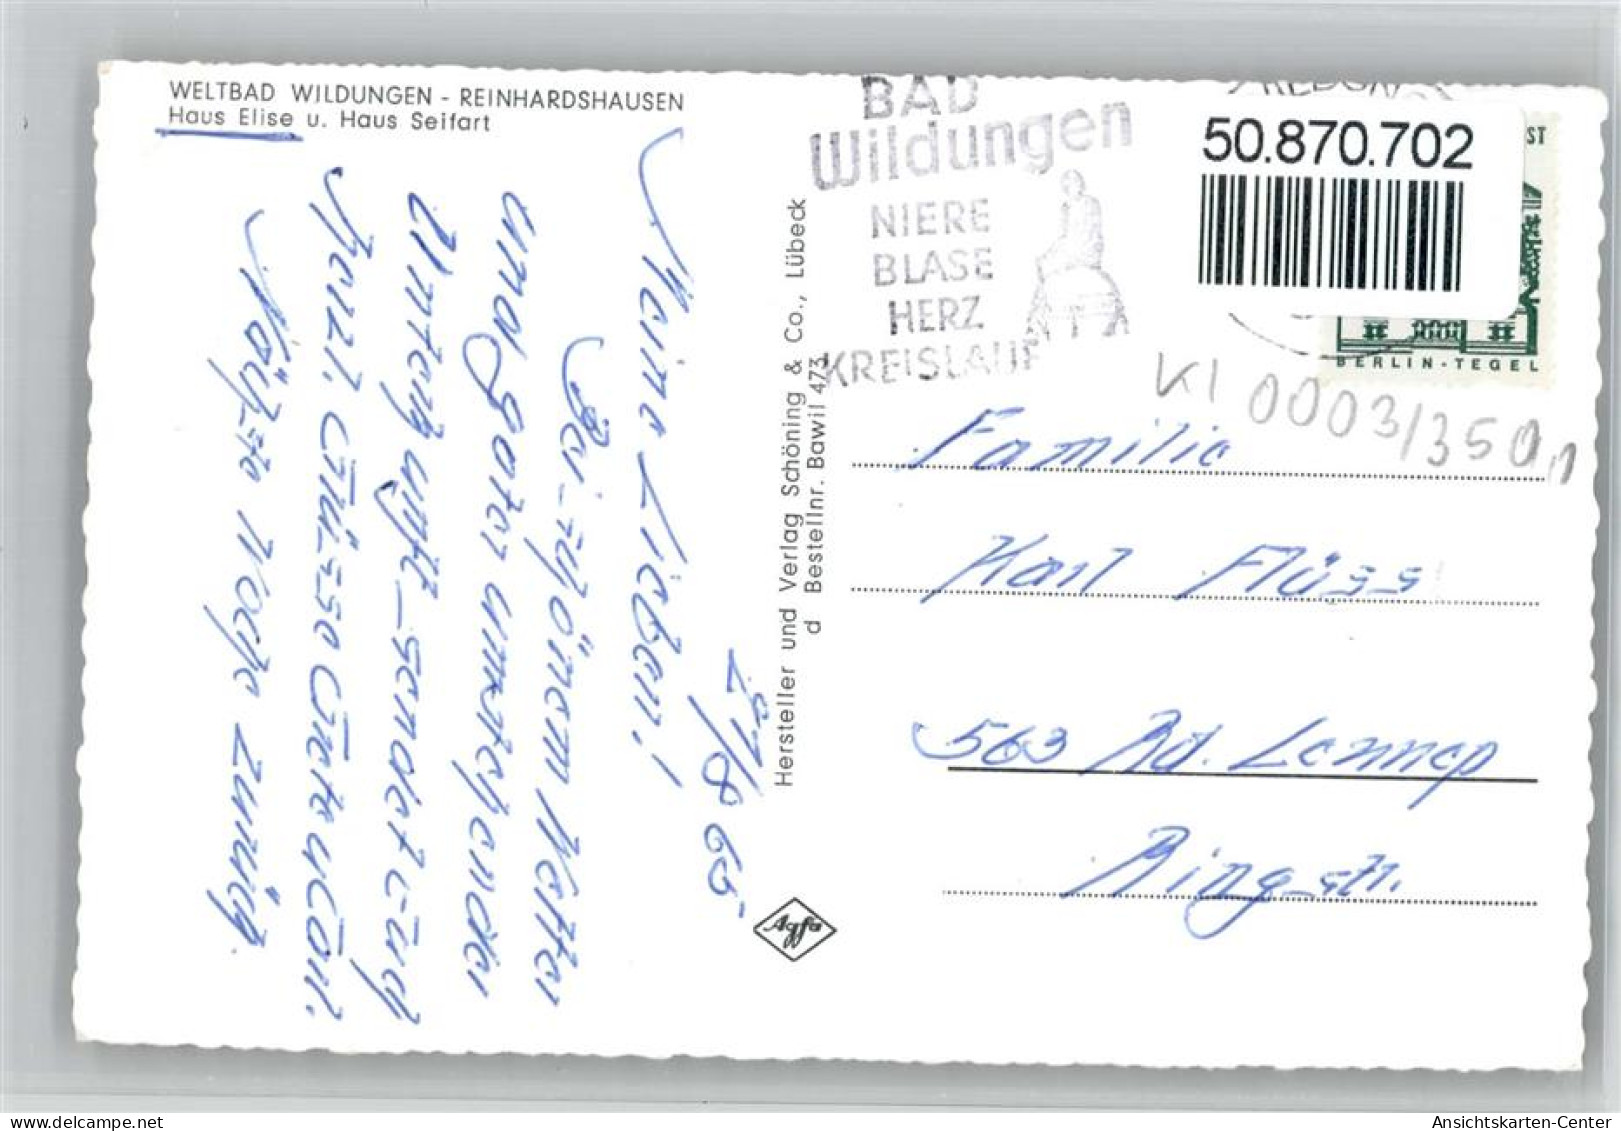 WELTBAD WILDUNGEN - REINHARDSHAUSEN
Haus Elise u. Haus Seifart
29/8 65
Meine Lieben!
Bei schönem Wetter
und guter
Unterkunft sendet Euch
herzl. Grüsse Grete u Emil
Nächste Woche zurück.
Hersteller und Verlag Schöning & Co., Lübeck
d Bestellnr. Bawil 473
Agfa
BAD
Wildungen
NIERE
BLASE
HERZ
KREISLAUF
50.870.702
ST
BERLIN-TEGEL
KI 0003/350
Familie
Karl Flüss
563 Rd. Lennep
Ringstr.
Ansichtskarten-Center